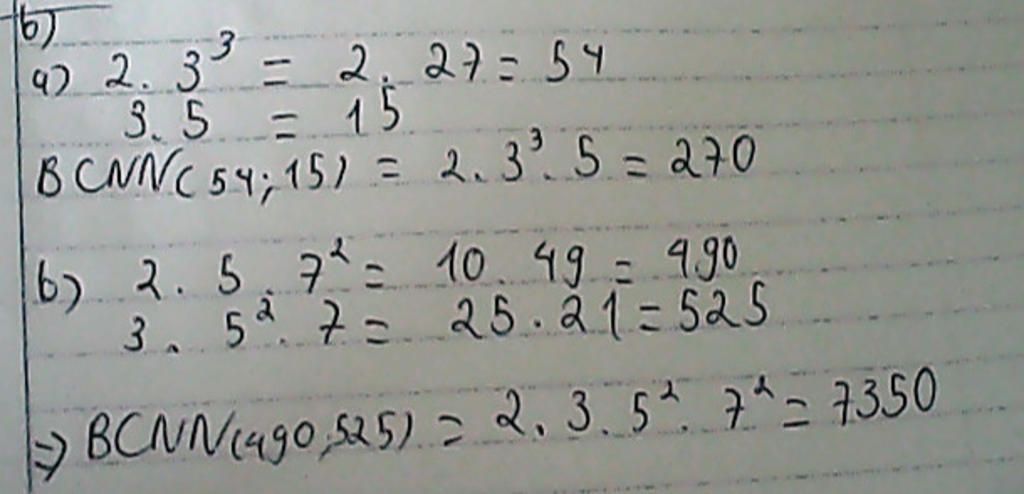 b)
a) 2. 3³ = 2. 27 = 54
3. 5 = 15
BCNN(54;15) = 2. 3³. 5 = 270
b) 2. 5. 7² = 10. 49 = 490
3. 5². 7 = 25. 21 = 525
=> BCNN(490,525) = 2. 3. 5². 7² = 7350